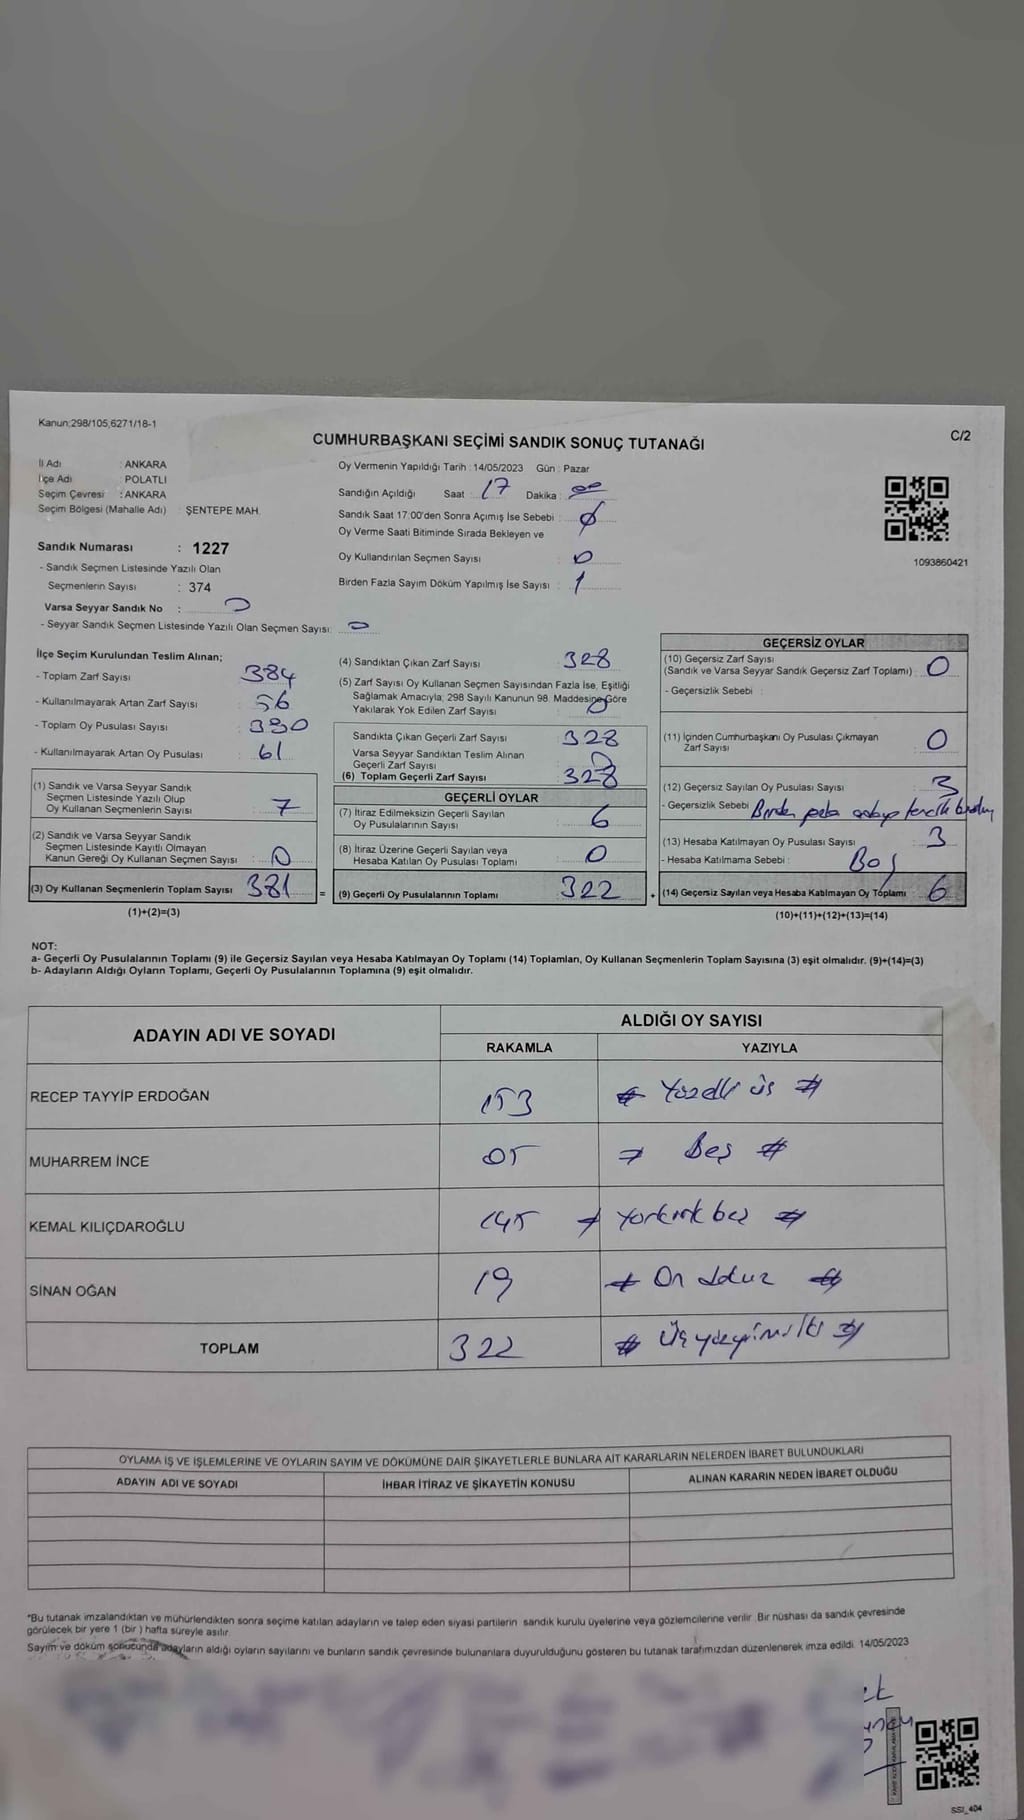 Kanun;298/105,6271/18-1
C/2
CUMHURBAŞKANI SEÇİMİ SANDIK SONUÇ TUTANAĞI
İl Adı : ANKARA
İlçe Adı : POLATLI
Seçim Çevresi : ANKARA
Seçim Bölgesi (Mahalle Adı) : ŞENTEPE MAH.
Sandık Numarası : 1227
- Sandık Seçmen Listesinde Yazılı Olan
Seçmenlerin Sayısı : 374
Varsa Seyyar Sandık No : 0
- Seyyar Sandık Seçmen Listesinde Yazılı Olan Seçmen Sayısı: 0
Oy Vermenin Yapıldığı Tarih : 14/05/2023 Gün : Pazar
Sandığın Açıldığı Saat : 17 Dakika : 00
Sandık Saat 17:00'den Sonra Açımış İse Sebebi : Ø
Oy Verme Saati Bitiminde Sırada Bekleyen ve
Oy Kullandırılan Seçmen Sayısı : 0
Birden Fazla Sayım Döküm Yapılmış İse Sayısı : 1
1093860421
İlçe Seçim Kurulundan Teslim Alınan;
- Toplam Zarf Sayısı : 384
- Kullanılmayarak Artan Zarf Sayısı : 56
- Toplam Oy Pusulası Sayısı : 390
- Kullanılmayarak Artan Oy Pusulası : 61
(1) Sandık ve Varsa Seyyar Sandık
Seçmen Listesinde Yazılı Olup
Oy Kullanan Seçmenlerin Sayısı : 7
(2) Sandık ve Varsa Seyyar Sandık
Seçmen Listesinde Kayıtlı Olmayan
Kanun Gereği Oy Kullanan Seçmen Sayısı : 0
(3) Oy Kullanan Seçmenlerin Toplam Sayısı : 381
(1)+(2)=(3)
(4) Sandıktan Çıkan Zarf Sayısı : 328
(5) Zarf Sayısı Oy Kullanan Seçmen Sayısından Fazla İse, Eşitliği
Sağlamak Amacıyla; 298 Sayılı Kanunun 98. Maddesine Göre
Yakılarak Yok Edilen Zarf Sayısı : 0
Sandıkta Çıkan Geçerli Zarf Sayısı : 328
Varsa Seyyar Sandıktan Teslim Alınan
Geçerli Zarf Sayısı : 0
(6) Toplam Geçerli Zarf Sayısı : 328
GEÇERLİ OYLAR
(7) İtiraz Edilmeksizin Geçerli Sayılan
Oy Pusulalarının Sayısı : 6
(8) İtiraz Üzerine Geçerli Sayılan veya
Hesaba Katılan Oy Pusulası Toplamı : 0
= (9) Geçerli Oy Pusulalarının Toplamı : 322 +
GEÇERSİZ OYLAR
(10) Geçersiz Zarf Sayısı
(Sandık ve Varsa Seyyar Sandık Geçersiz Zarf Toplamı) : 0
- Geçersizlik Sebebi :
(11) İçinden Cumhurbaşkanı Oy Pusulası Çıkmayan
Zarf Sayısı : 0
(12) Geçersiz Sayılan Oy Pusulası Sayısı : 3
- Geçersizlik Sebebi :
(13) Hesaba Katılmayan Oy Pusulası Sayısı : 3
- Hesaba Katılmama Sebebi : Boş
(14) Geçersiz Sayılan veya Hesaba Katılmayan Oy Toplamı : 6
(10)+(11)+(12)+(13)=(14)
NOT:
a- Geçerli Oy Pusulalarının Toplamı (9) ile Geçersiz Sayılan veya Hesaba Katılmayan Oy Toplamı (14) Toplamları, Oy Kullanan Seçmenlerin Toplam Sayısına (3) eşit olmalıdır. (9)+(14)=(3)
b- Adayların Aldığı Oyların Toplamı, Geçerli Oy Pusulalarının Toplamına (9) eşit olmalıdır.
ADAYIN ADI VE SOYADI
ALDIĞI OY SAYISI
RAKAMLA YAZIYLA
RECEP TAYYİP ERDOĞAN 153 # Yüzelli üç #
MUHARREM İNCE 05 # Beş #
KEMAL KILIÇDAROĞLU 145 # Yüzkırkbeş #
SİNAN OĞAN 19 # On dokuz #
TOPLAM 322 # Üçyüzyirmiiki #
OYLAMA İŞ VE İŞLEMLERİNE VE OYLARIN SAYIM VE DÖKÜMÜNE DAİR ŞİKAYETLERLE BUNLARA AİT KARARLARIN NELERDEN İBARET BULUNDUKLARI
ADAYIN ADI VE SOYADI İHBAR İTİRAZ VE ŞİKAYETİN KONUSU ALINAN KARARIN NEDEN İBARET OLDUĞU
*Bu tutanak imzalandıktan ve mühürlendikten sonra seçime katılan adayların ve talep eden siyasi partilerin sandık kurulu üyelerine veya gözlemcilerine verilir. Bir nüshası da sandık çevresinde
görülecek bir yere 1 (bir ) hafta süreyle asılır.
Sayım ve döküm sonucunda adayların aldığı oyların sayılarını ve bunların sandık çevresinde bulunanlara duyurulduğunu gösteren bu tutanak tarafımızdan düzenlenerek imza edildi. 14/05/2023
SSI_404